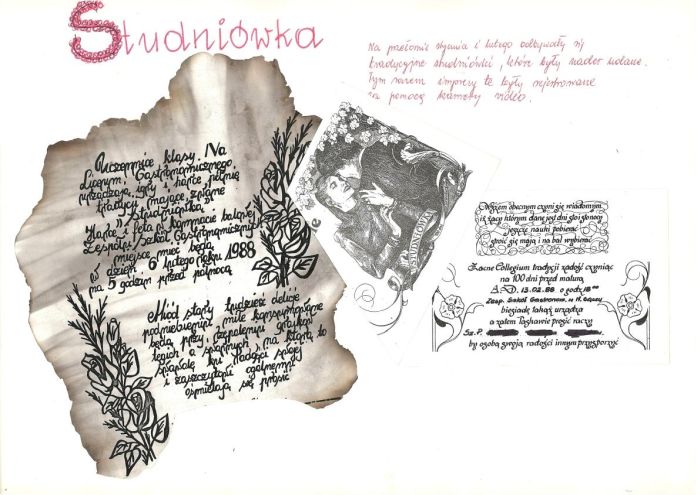 Studniówka
Na przełomie stycznia i lutego odbywały się
tradycyjne studniówki, które były nader udane.
Tym razem imprezy te były rejestrowane
za pomocą kamery video.
Uczennice klasy IVa
Liceum Gastronomicznego
urządzają igry i harce, pilnie
tradycji mające zwane
"Studniówka"
Harce i feta w komnacie balowej
Zespołu Szkół Gastronomicznych
miejsce mieć będą
w dzień 6 lutego roku 1988
na 5 godzin przed północą
Miód stary tudzież delicje
podniebieniu miłe konsumowane
będą przy
tęgich a sprawnych, na którą to
ku radości swojej
i zaszczytowi ogólnemu
ośmielają się prosić
STUDNIÓWKA
Wszem obecnym czyni się wiadomym,
iż żacy którym dane jest dni sto jeno
jeszcze nauki pobierać
stroić się mają i na bal wybierać
Zacne Collegium tradycji zadość czyniąc
na 100 dni przed maturą
A.D. 13.02.88 o godz. 18⁰⁰
Zesp. Szkół Gastronom. w N. Sączu
biesiadę takąż urządza
a zatem Łaskawie prosić raczy
Sz.P.
by osobą swoją radości innym przysporzyć